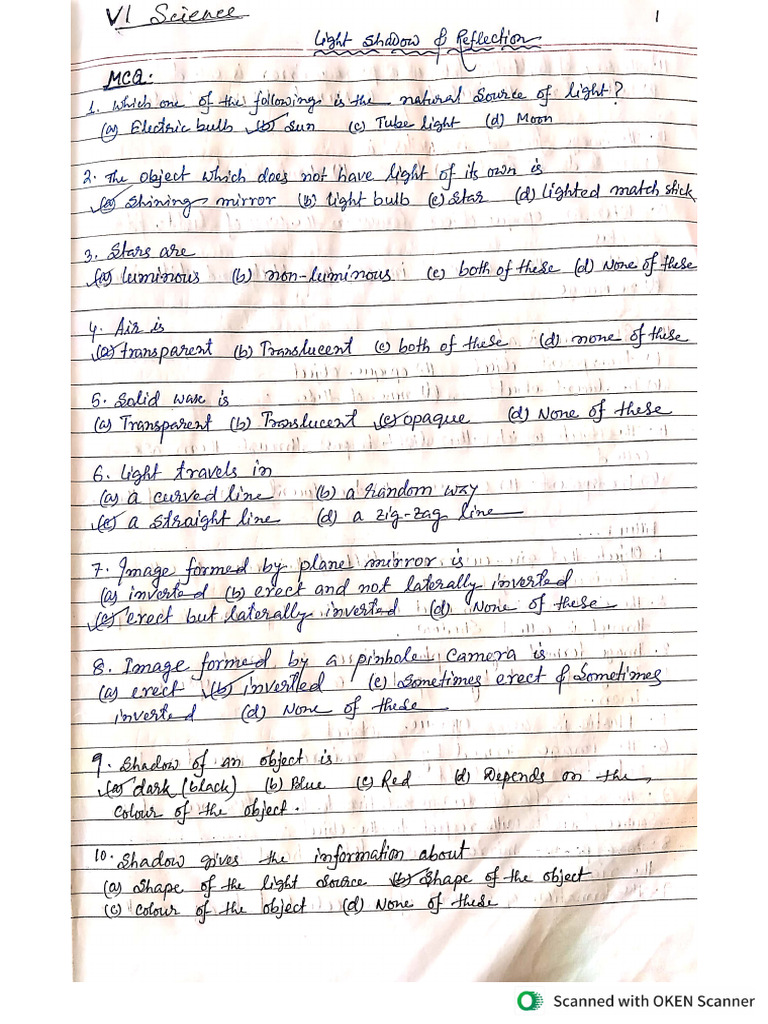 VI Science
1
Light Shadow & Reflection
MCQ:
1. Which one of the followings is the natural source of light?
(a) Electric bulb (b) Sun (c) Tube light (d) Moon
2. The object which does not have light of its own is
(a) Shining mirror (b) light bulb (c) Star (d) lighted match stick
3. Stars are
(a) luminous (b) non-luminous (c) both of these (d) None of these
4. Air is
(a) transparent (b) Translucent (c) both of these (d) none of these
5. Solid wax is
(a) Transparent (b) Translucent (c) opaque (d) None of these
6. Light travels in
(a) a curved line (b) a random way
(c) a straight line (d) a zig-zag line
7. Image formed by plane mirror is
(a) inverted (b) erect and not laterally inverted
(c) erect but laterally inverted (d) None of these
8. Image formed by a pinhole camera is
(a) erect (b) inverted (c) Sometimes erect & Sometimes
inverted (d) None of these
9. Shadow of an object is
(a) dark (black) (b) Blue (c) Red (d) Depends on the
colour of the object.
10. Shadow gives the information about
(a) Shape of the light source (b) Shape of the object
(c) colour of the object (d) None of these
Scanned with OKEN Scanner